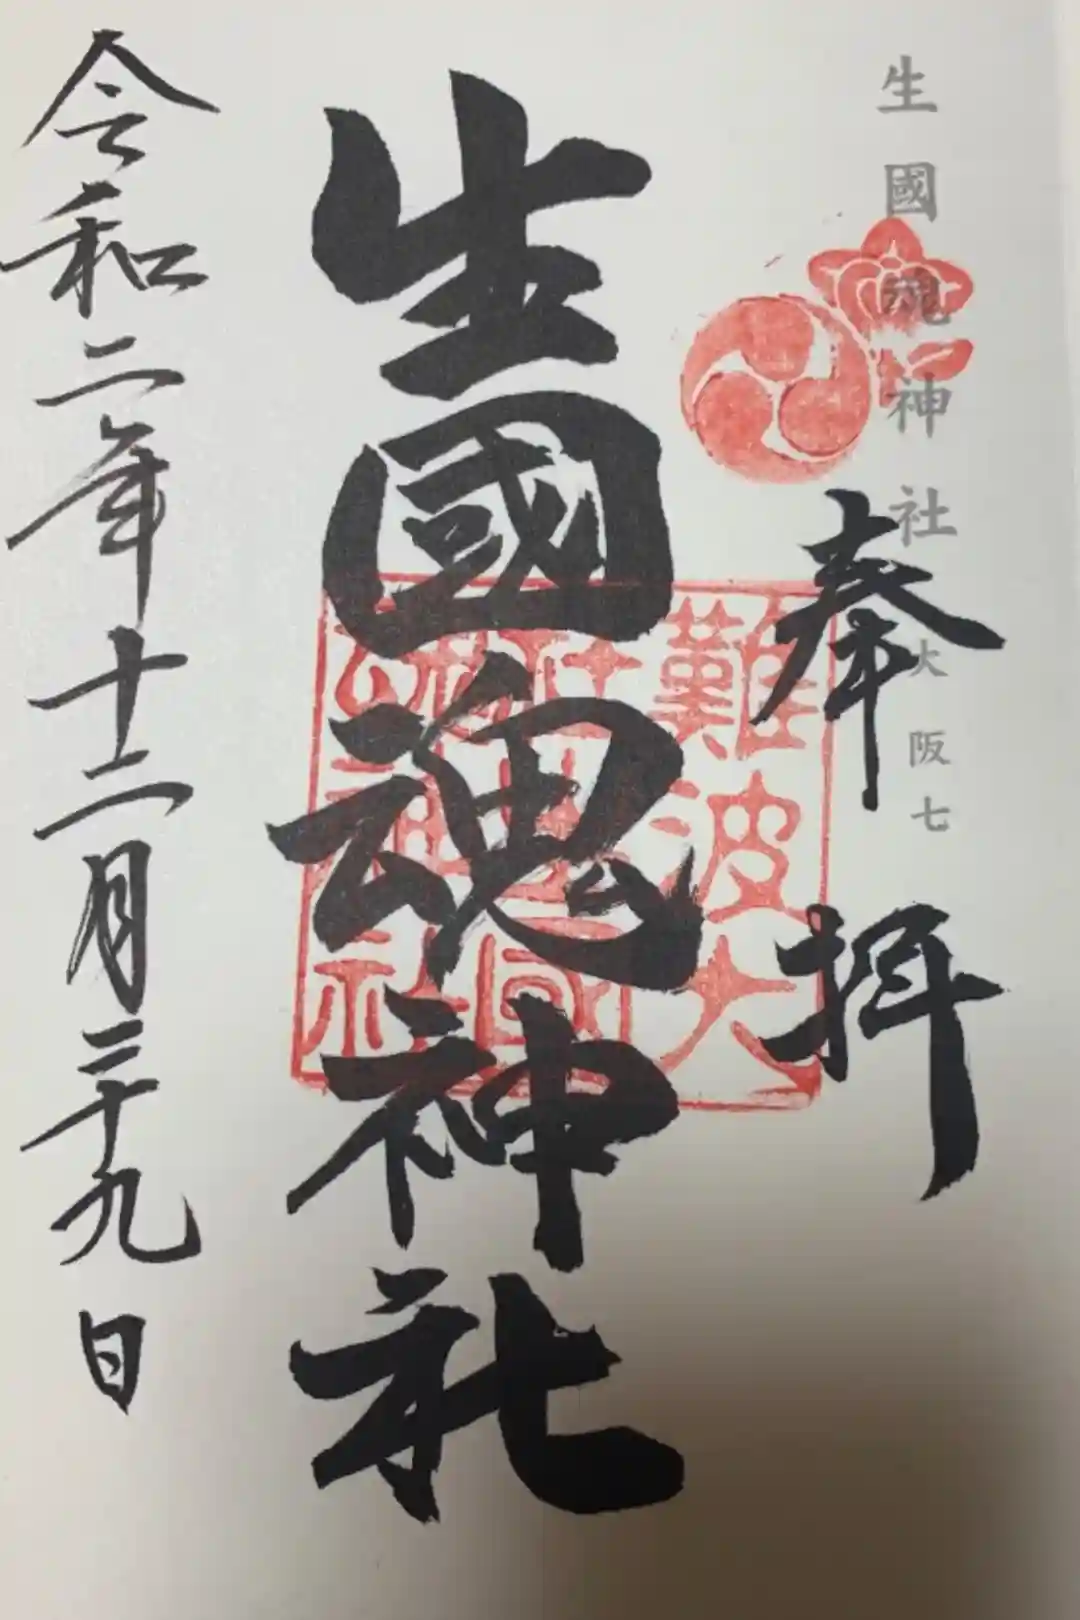 生國魂神社
大阪七
奉拝
生國魂神社
難波大
令和二年十二月二十九日